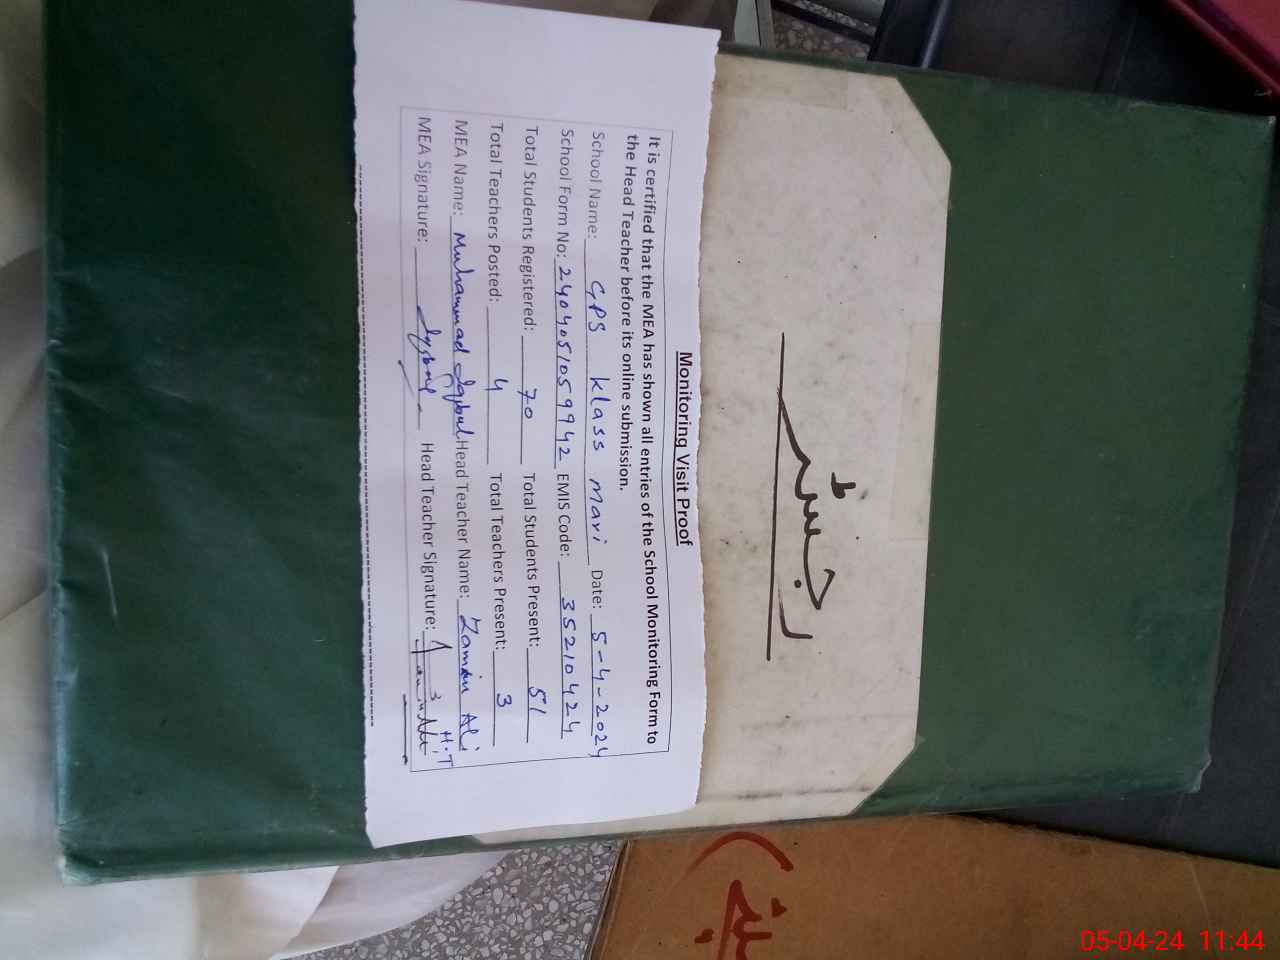 Monitoring Visit Proof
It is certified that the MEA has shown all entries of the School Monitoring Form to
the Head Teacher before its online submission.
School Name: GPS Klass Mari Date: 5-4-2024
School Form No: 2404051059942 EMIS Code: 35210424
Total Students Registered: 70 Total Students Present: 51
Total Teachers Posted: 4 Total Teachers Present: 3
MEA Name: Muhammad Iqbal Head Teacher Name: Zamin Ali
H.T
MEA Signature: Iqbal Head Teacher Signature:
رجسٹر
05-04-24 11:44